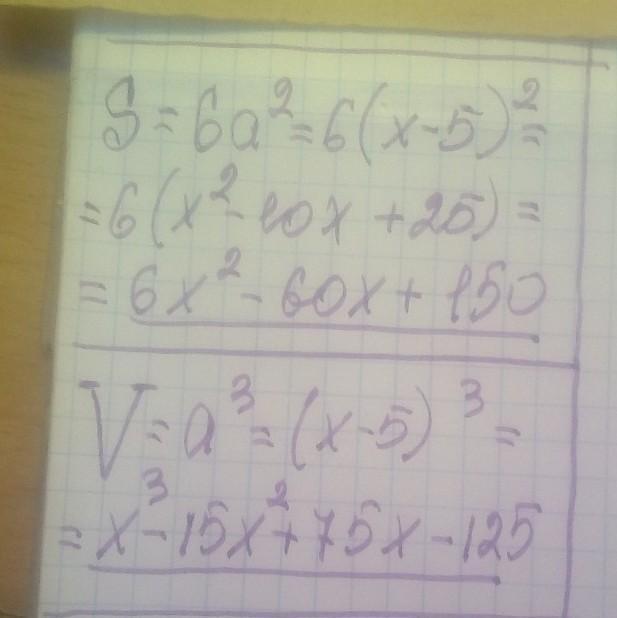 S = 6a² = 6(x-5)² =
= 6(x² - 10x + 25) =
= 6x² - 60x + 150
V = a³ = (x-5)³ =
= x³ - 15x² + 75x - 125